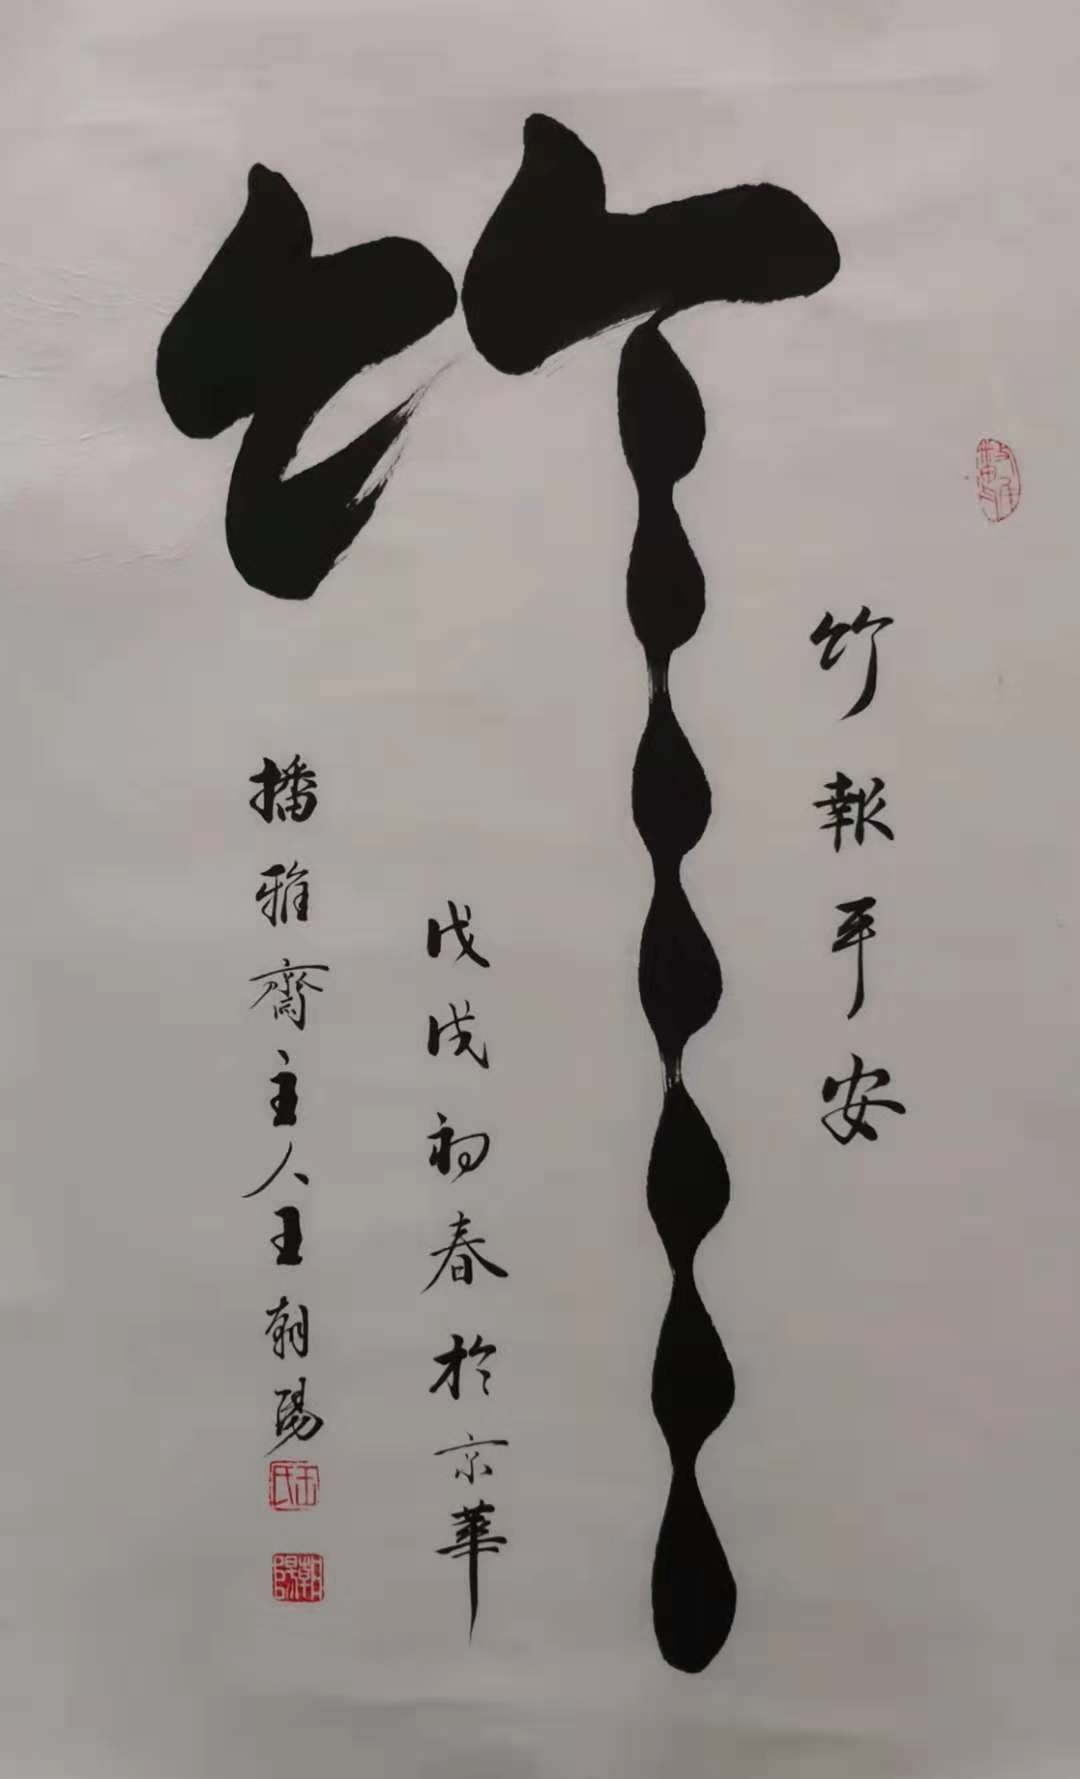 竹
竹報平安
戊戌初春於京華
播雅齋主人王朝陽
王氏
朝陽